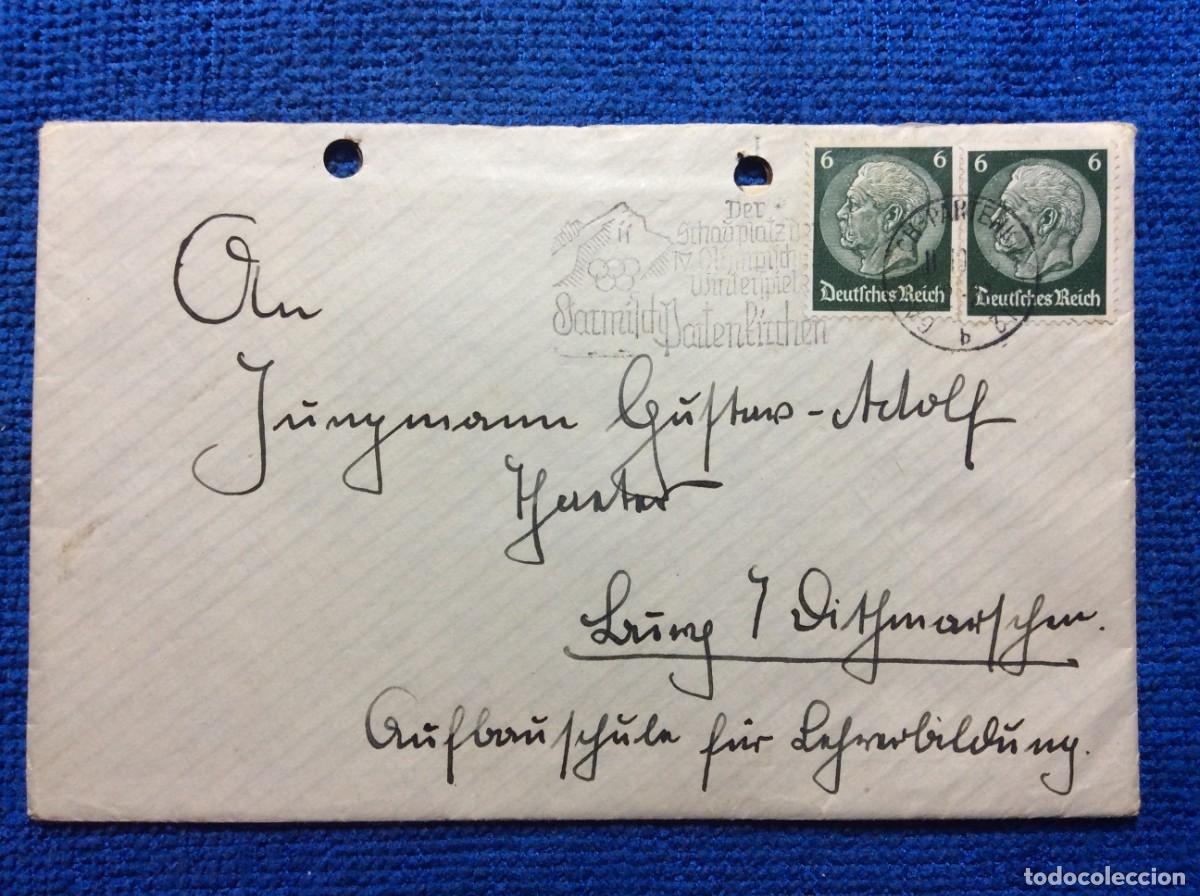 6 6
6 6
Deutsches Reich
Deutsches Reich
Der
Schauplatz der
IV. Olympischen
Winterspiele
Garmisch-Partenkirchen
An
Jungmann Gustav-Adolf
Thaeter
Burg / Dithmarschen.
Aufbauschule für Lehrerbildung.
todocoleccion